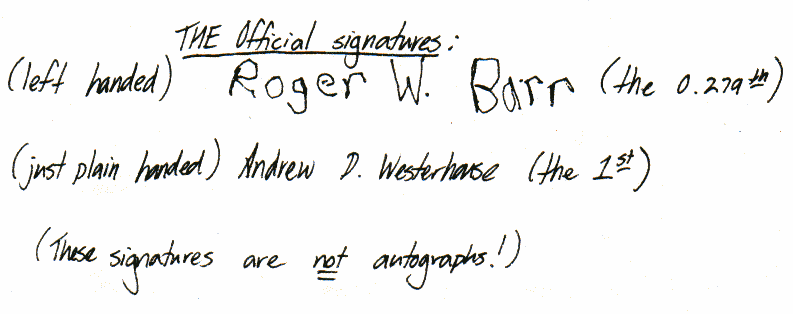 THE Official signatures:
(left handed) Roger W. Barr (the 0.279th)
(just plain handed) Andrew D. Westerhouse (the 1st)
(These signatures are not autographs!)